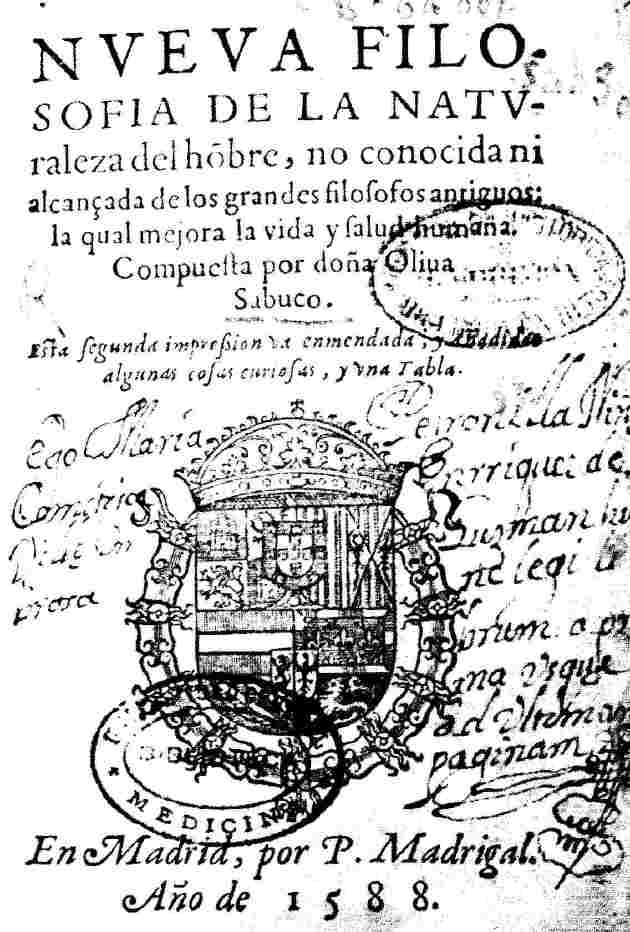 NVEVA FILO-
SOFIA DE LA NATV-
raleza del hõbre, no conocida ni
alcançada de los grandes filoſofos antiguos:
la qual mejora la vida y ſalud humana.
Compueſta por doña Oliua
Sabuco.
Esta ſegunda impreſsion va enmendada, y añadidas
algunas coſas curioſas, y vna Tabla.
Ego Maria
Petronilla
Enrriquez de
Guzman
legi
a
usque
ad Vltimam
paginam
MEDICINA
En Madrid, por P. Madrigal.
Año de 1588.